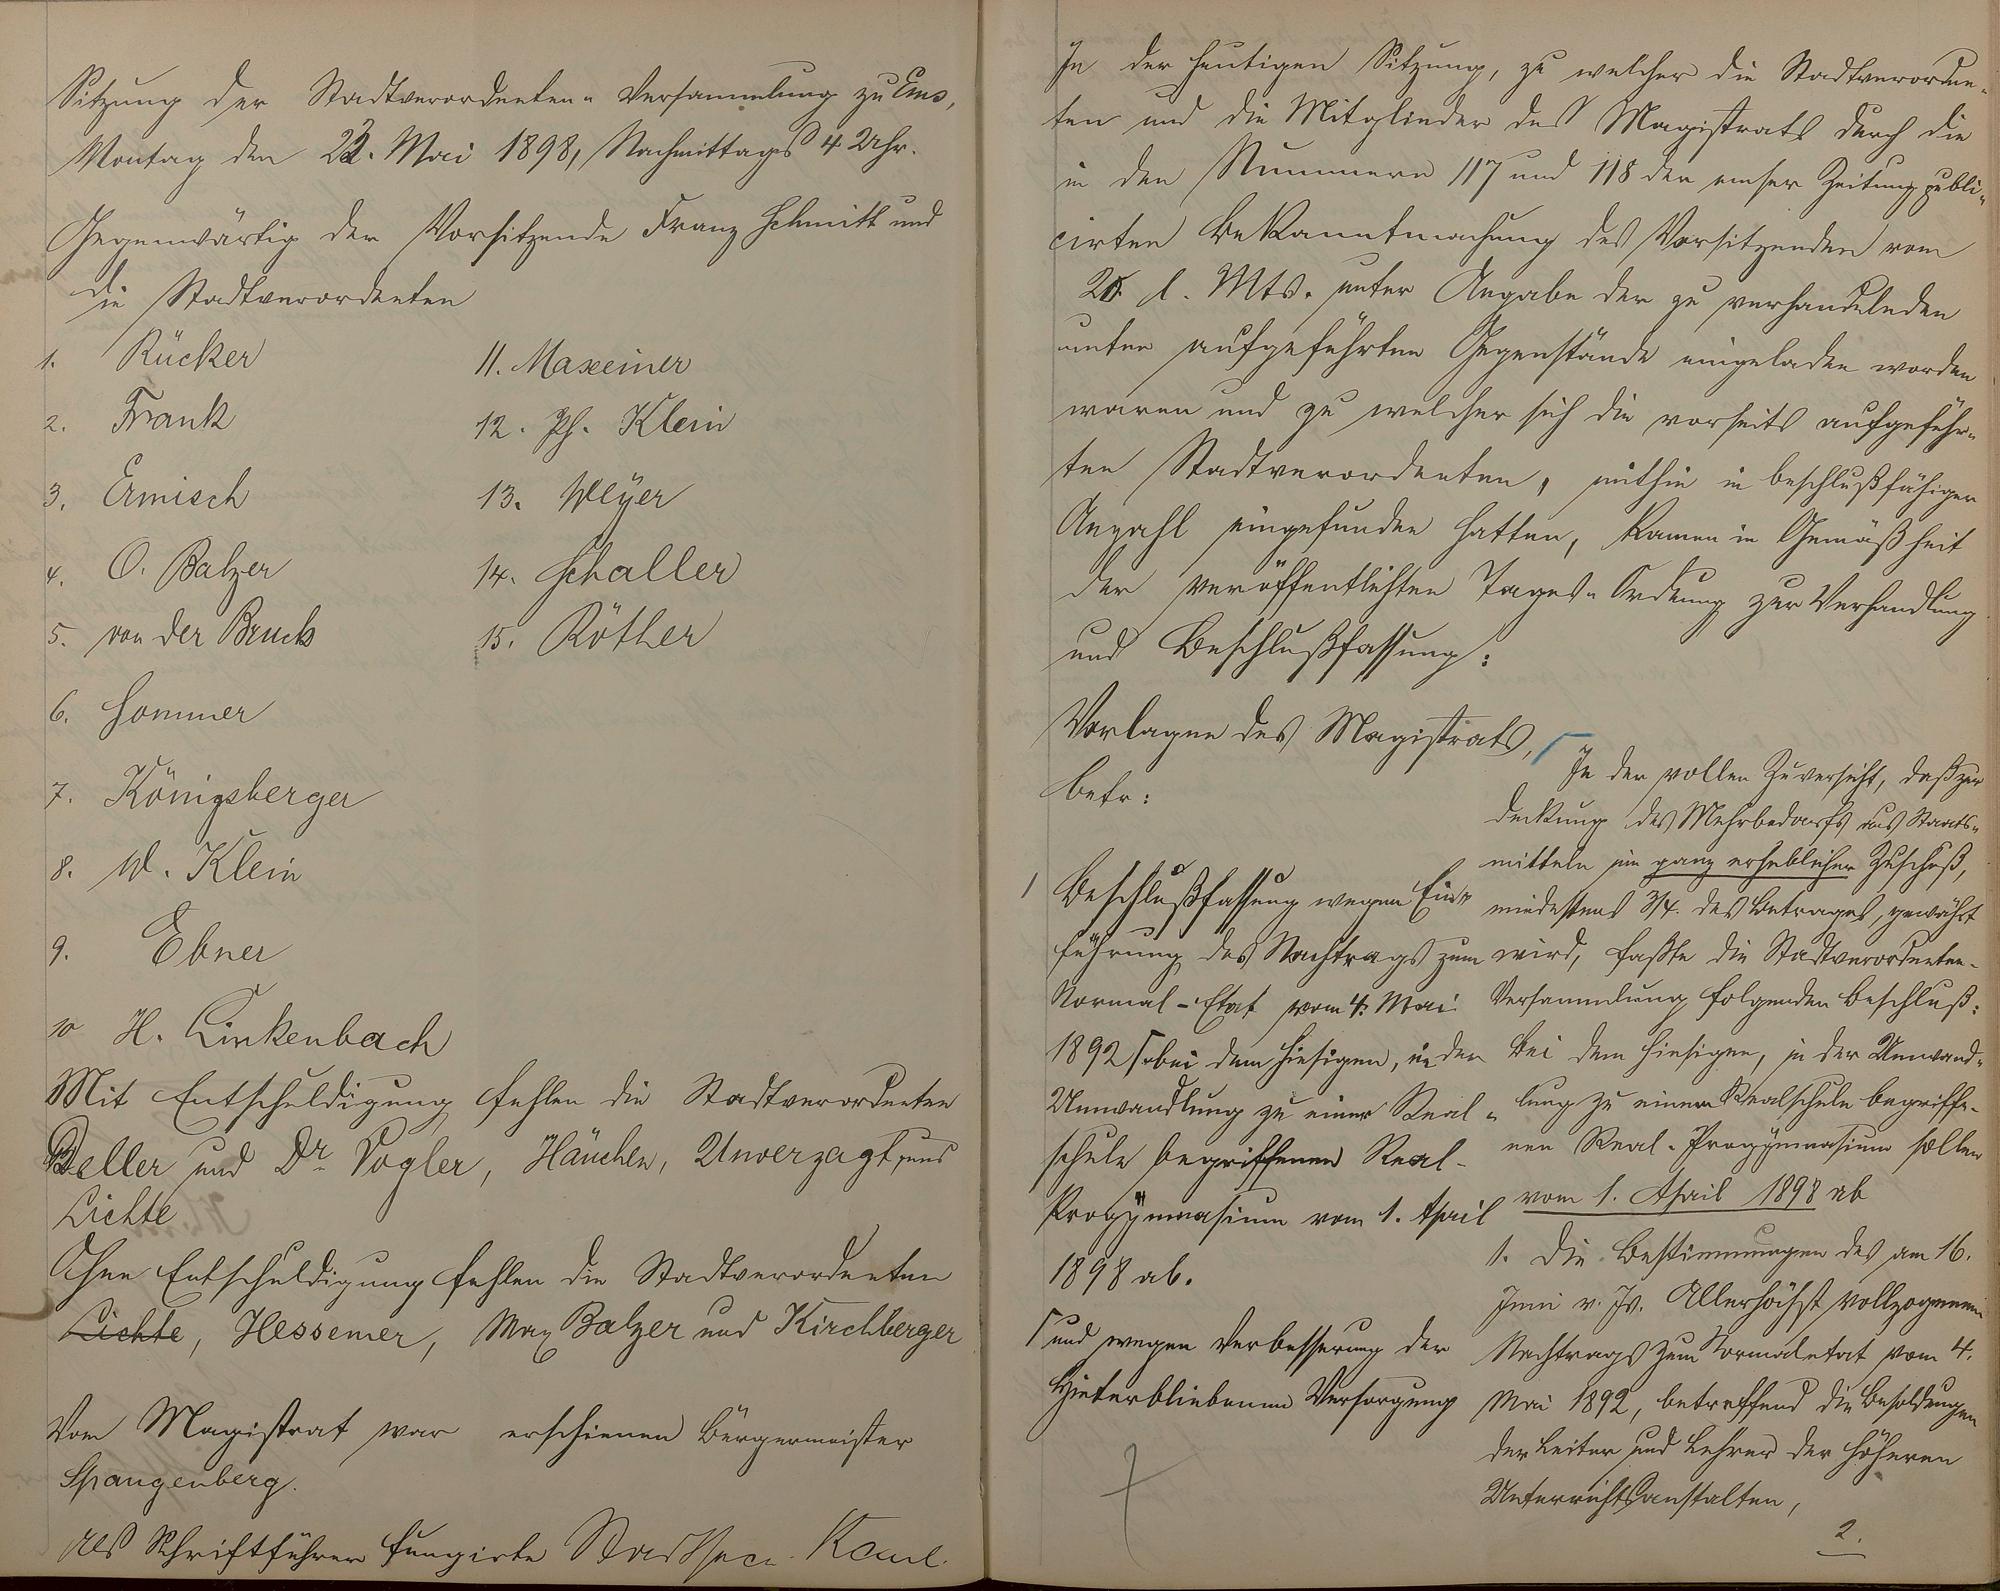 Sitzung der Stadtverordneten-Versammlung zu Ems,
Montag den 23. Mai 1898, Nachmittags 4 Uhr.
Gegenwärtig der Vorsitzende Franz Schmitt und
die Stadtverordneten
1. Rücker
2. Frank
3. Ermisch
4. O. Balzer
5. von der Bruck
6. Sommer
7. Königsberger
8. W. Klein
9. Ebner
10 H. Linkenbach
11. Maxeiner
12. Ph. Klein
13. Weyer
14. Schaller
15. Röther
Mit Entschuldigung fehlen die Stadtverordneten
Beller und Dr. Vogler, Häuchen, Unverzagt, und
Lichte
Ohne Entschuldigung fehlen die Stadtverordneten
Lichte, Hessemer, Max Balzer und Kirchberger
Vom Magistrat war erschienen Bürgermeister
Spangenberg.
Als Schriftführer fungirte Stadtsecr. Kaul.
In der heutigen Sitzung, zu welcher die Stadtverordne-
ten und die Mitglieder des Magistrats durch die
in den Nummern 117 und 118 der emser Zeitung publi-
cirten Bekanntmachung des Vorsitzenden vom
l. Mts. unter Angabe der zu verhandelnden
unten aufgeführten Gegenstände eingeladen worden
waren und zu welcher sich die vorseits aufgeführ-
ten Stadtverordneten, mithin in beschlußfähiger
Anzahl eingefunden hatten, kamen in Gemäßheit
der veröffentlichten Tages-Ordnung zur Verhandlung
und Beschlußfassung:
Vorlagen des Magistrats,
betr:
1 Beschlußfassung wegen Ein-
führung des Nachtrags zum
Normal-Etat vom 4. Mai
1892 ⌈ bei dem hiesigen, in der
Umwandlung zu einer Real-
schule begriffenen Real-
Progymnasium vom 1. April
1898 ab.
⌈ und wegen Verbesserung der
Hinterbliebenen Versorgung
In der vollen Zuversicht, daß zur
Deckung des Mehrbedarfs aus Staats-
mitteln ein ganz erheblicher Zuschuß,
mindestens 3/4. des Betrages, gewährt
wird, faßte die Stadtverordneten-
Versammlung folgenden Beschluß:
Bei dem hiesigen, in der Umwand-
lung zu einer Realschule begriffe-
nen Real-Progymnasium sollen
vom 1. April 1898 ab
1. Die Bestimmungen des am 16.
Juni v. Js. Allerhöchst vollzogenen
Nachtrags zum Normaletat vom 4.
Mai 1892, betreffend die Besoldungen
der Leiter und Lehrer der höheren
Unterrichtsanstalten,
2.